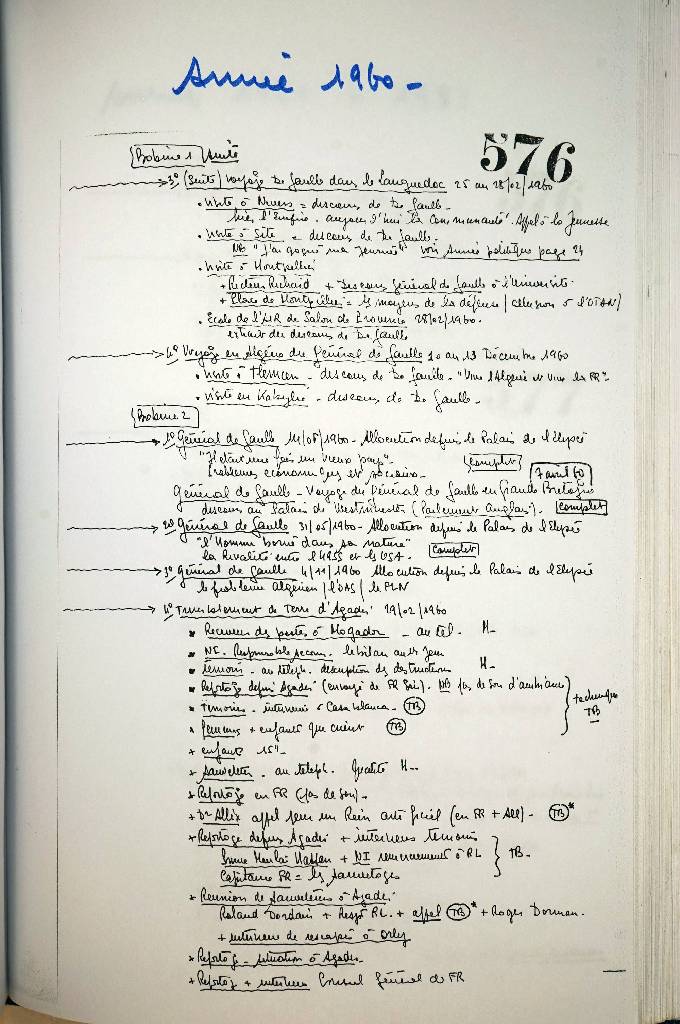 Année 1960 -
576
Bobine 1 suite
3° (suite) voyage De Gaulle dans le Languedoc 25 au 28/02/1960
• Visite à Nimes = discours de De Gaulle -
hier, l'Empire - aujourd'hui la communauté. Appel à la Jeunesse
• Visite à Sète = discours de De Gaulle -
NB "J'ai gagné ma journée" voir année politique page 24
• Visite à Montpellier
+ Recteur Richard + Discours Général de Gaulle à l'Université
+ Place de Montpellier = les moyens de la défense / allusion à l'OTAN /
• Ecole de l'AIR de Salon de Provence 28/02/1960 -
extrait du discours de De Gaulle
4° Voyage en Algérie du Général de Gaulle 10 au 13 Décembre 1960
• Visite à Tlemcen - discours de De Gaulle - "Vive l'Algérie et vive la FR" -
• Visite en Kabylie - discours de De Gaulle -
Bobine 2
1° Général de Gaulle 14/06/1960 - Allocution depuis le Palais de l'Elysée
"Il était une fois un vieux pays" -
Problèmes économiques et sociaux - complet
7 avril 60
Général de Gaulle - Voyage du Général de Gaulle en Grande Bretagne
discours au Palais de Westminster (Parlement Anglais). complet
2° Général de Gaulle 31/05/1960 - Allocution depuis le Palais de l'Elysée
"l'Homme borné dans sa nature"
la Rivalité entre l'URSS et les USA. complet
3° Général de Gaulle 4/11/1960 Allocution depuis le Palais de l'Elysée
le problème algérien / l'OAS / le FLN
4° Tremblement de Terre d'Agadir 29/02/1960
• Receveur des postes à Mogador - au tel. M-
• NI. Responsable secours. le bilan
• Témoin - au teleph. description des destructions M-
• Reportage depuis Agadir (envoyé de FR Soir). NB pas de son d'ambiance
• Témoins - interviews à Casablanca - TB
technique TB
• Femmes + enfants qui crient TB
+ enfants 15" -
+ Sauveteur - au teleph. Qualité M-
• Reportage en FR (pas de son) -
+ Dr Allix appel pour un Rein artificiel (en FR + All) - TB*
+ Reportage depuis Agadir + interviews témoins
Prince Moulai Hassan + NI remerciements à RL
TB -
Capitaine FR = les sauvetages
+ Réunion de sauveteurs à Agadir
Roland Dordain + RL. + appel TB* + Roger Dorman.
+ interview de rescapés à Orly
• Reportage - situation à Agadir -
+ Reportage + interview Consul Général de FR